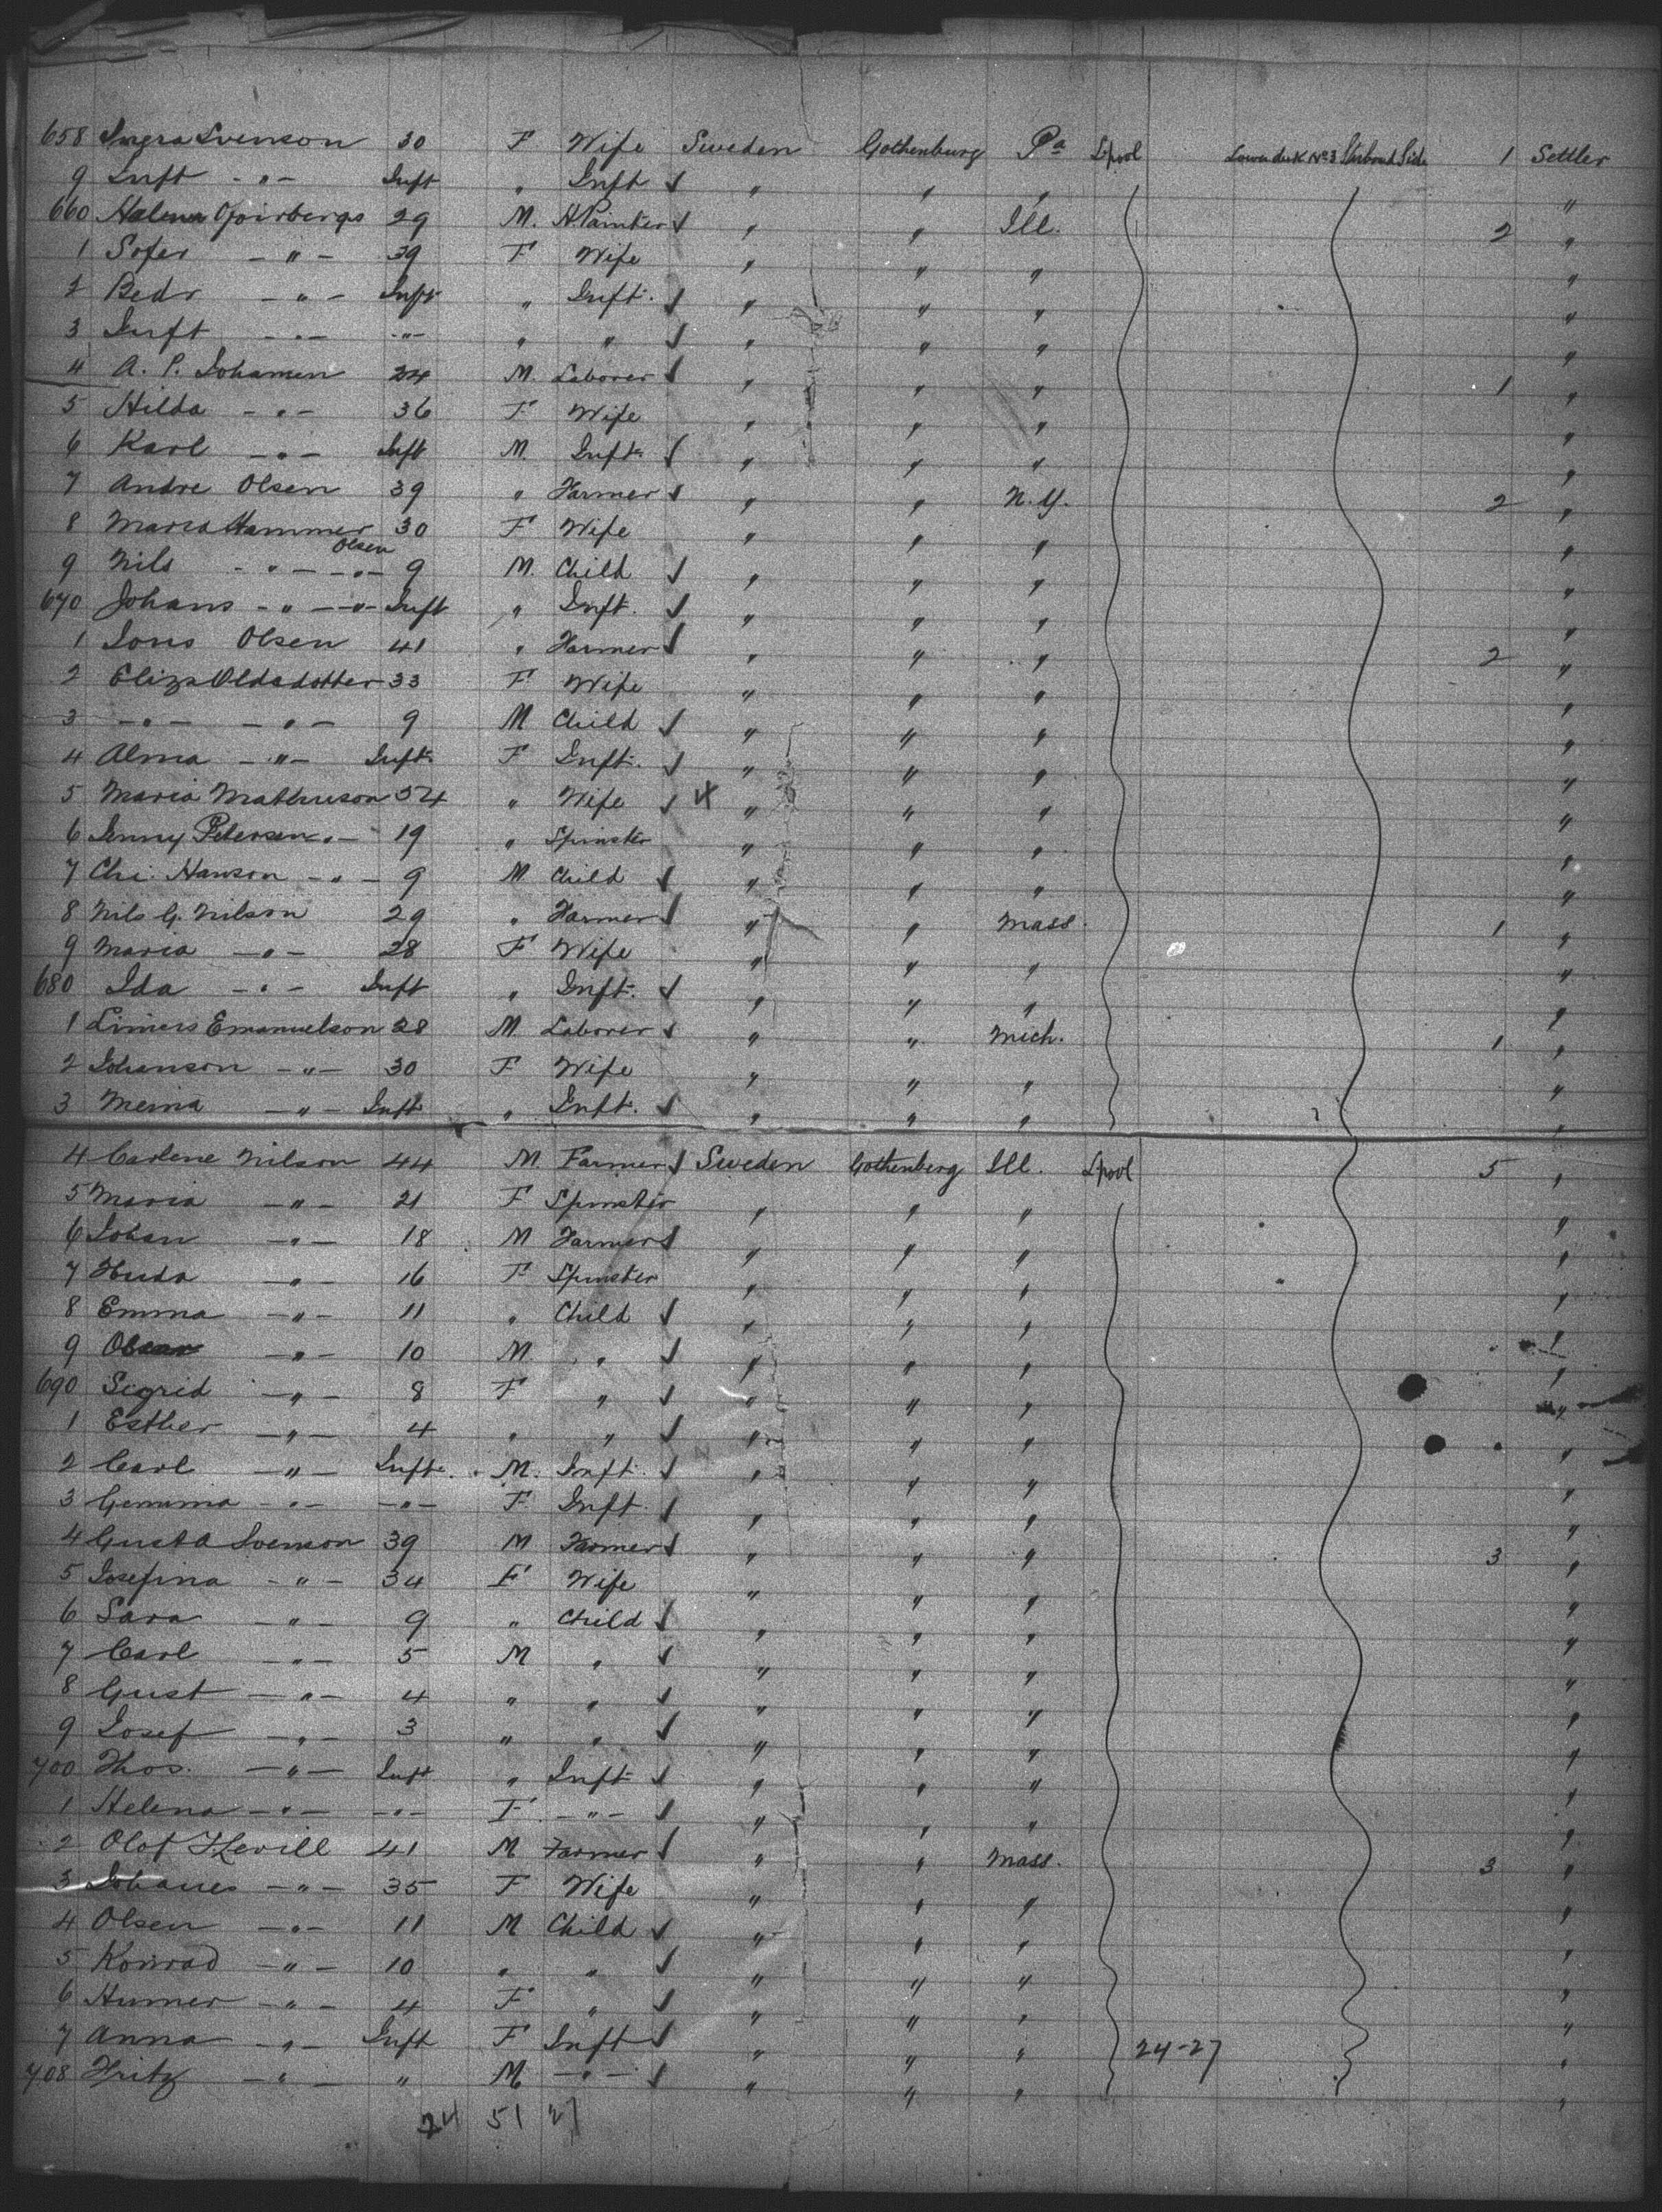 658 Ingra Svenson 30 F Wife Sweden Gothenburg Pa Lpool Lower deck No 3 Starboard Side 1 Settler
9 Inft -"- Inft " Inft " " " "
660 29 M. H. Painter " " Ill. 2 "
1 Sofer -"- 39 F Wife " " " "
2 Bedr -"- Inft " Inft. " " " "
3 Inft -"- -"- " " " " " "
4 A. P. Johamen 24 M. Laborer " " " 1 "
5 Hilda -"- 36 F Wife " " " "
6 Karl -"- Inft M. Inft. " " " "
7 Andre Olsen 39 " Farmer " " N.Y. 2 "
8 Maria Hammer 30 F Wife " " " "
Olsen
9 Nils -"- -"- 9 M. Child " " " "
670 Johans -"- -"- Inft " Inft. " " " "
1 Jons Olsen 41 " Farmer " " " 2 "
2 Eliza Oldsdotter 33 F Wife " " " "
3 -"- -"- 9 M Child " " " "
4 Alma -"- Inft. F Inft. " " " "
5 Maria Mathuson 54 " Wife 4 " " " "
6 Jenny Petersen -"- 19 " Spinster " " " "
7 Chr. Hanson -"- 9 M Child " " " "
8 Nils G. Nilson 29 " Farmer " " Mass. 1 "
9 Maria -"- 28 F Wife " " " "
680 Ida -"- Inft " Inft. " " " "
1 Emanuelson 28 M. Laborer " " Mich. 1 "
2 Johanson -"- 30 F Wife " " " "
3 Meina -"- Inft " Inft. " " " "
4 Carlene Nilson 44 M Farmer Sweden Gothenberg Ill. Lpool 5 "
5 Maria -"- 21 F Spinster " " " "
6 Johan -"- 18 M Farmer " " " "
7 Huda -"- 16 F Spinster " " " "
8 Emma -"- 11 " Child " " " "
9 -"- 10 M. " " " " "
690 Sigrid -"- 8 F " " " " "
1 Esther -"- 4 " " " " " "
2 Carl -"- Inft. M. Inft. " " " "
3 Gemima -"- -"- F. Inft. " " " "
4 Gust A Svenson 39 M Farmer " " " 3 "
5 Josefina -"- 34 F Wife " " " "
6 Sara -"- 9 " Child " " " "
7 Carl -"- 5 M " " " " "
8 Gust -"- 4 " " " " " "
9 Josef -"- 3 " " " " " "
700 Thos. -"- Inft " Inft " " " "
1 Helena -"- -"- F -"- " " " "
2 Olof 41 M Farmer " " Mass. 3 "
3 Johanes -"- 35 F Wife " " " "
4 Olsen -"- 11 M Child " " " "
5 Konrad -"- 10 " " " " " "
6 Humer -"- 4 F " " " " "
7 Anna -"- Inft F Inft " " " 24-27 "
708 Fritz -"- " M -"- " " " "
24 51 27